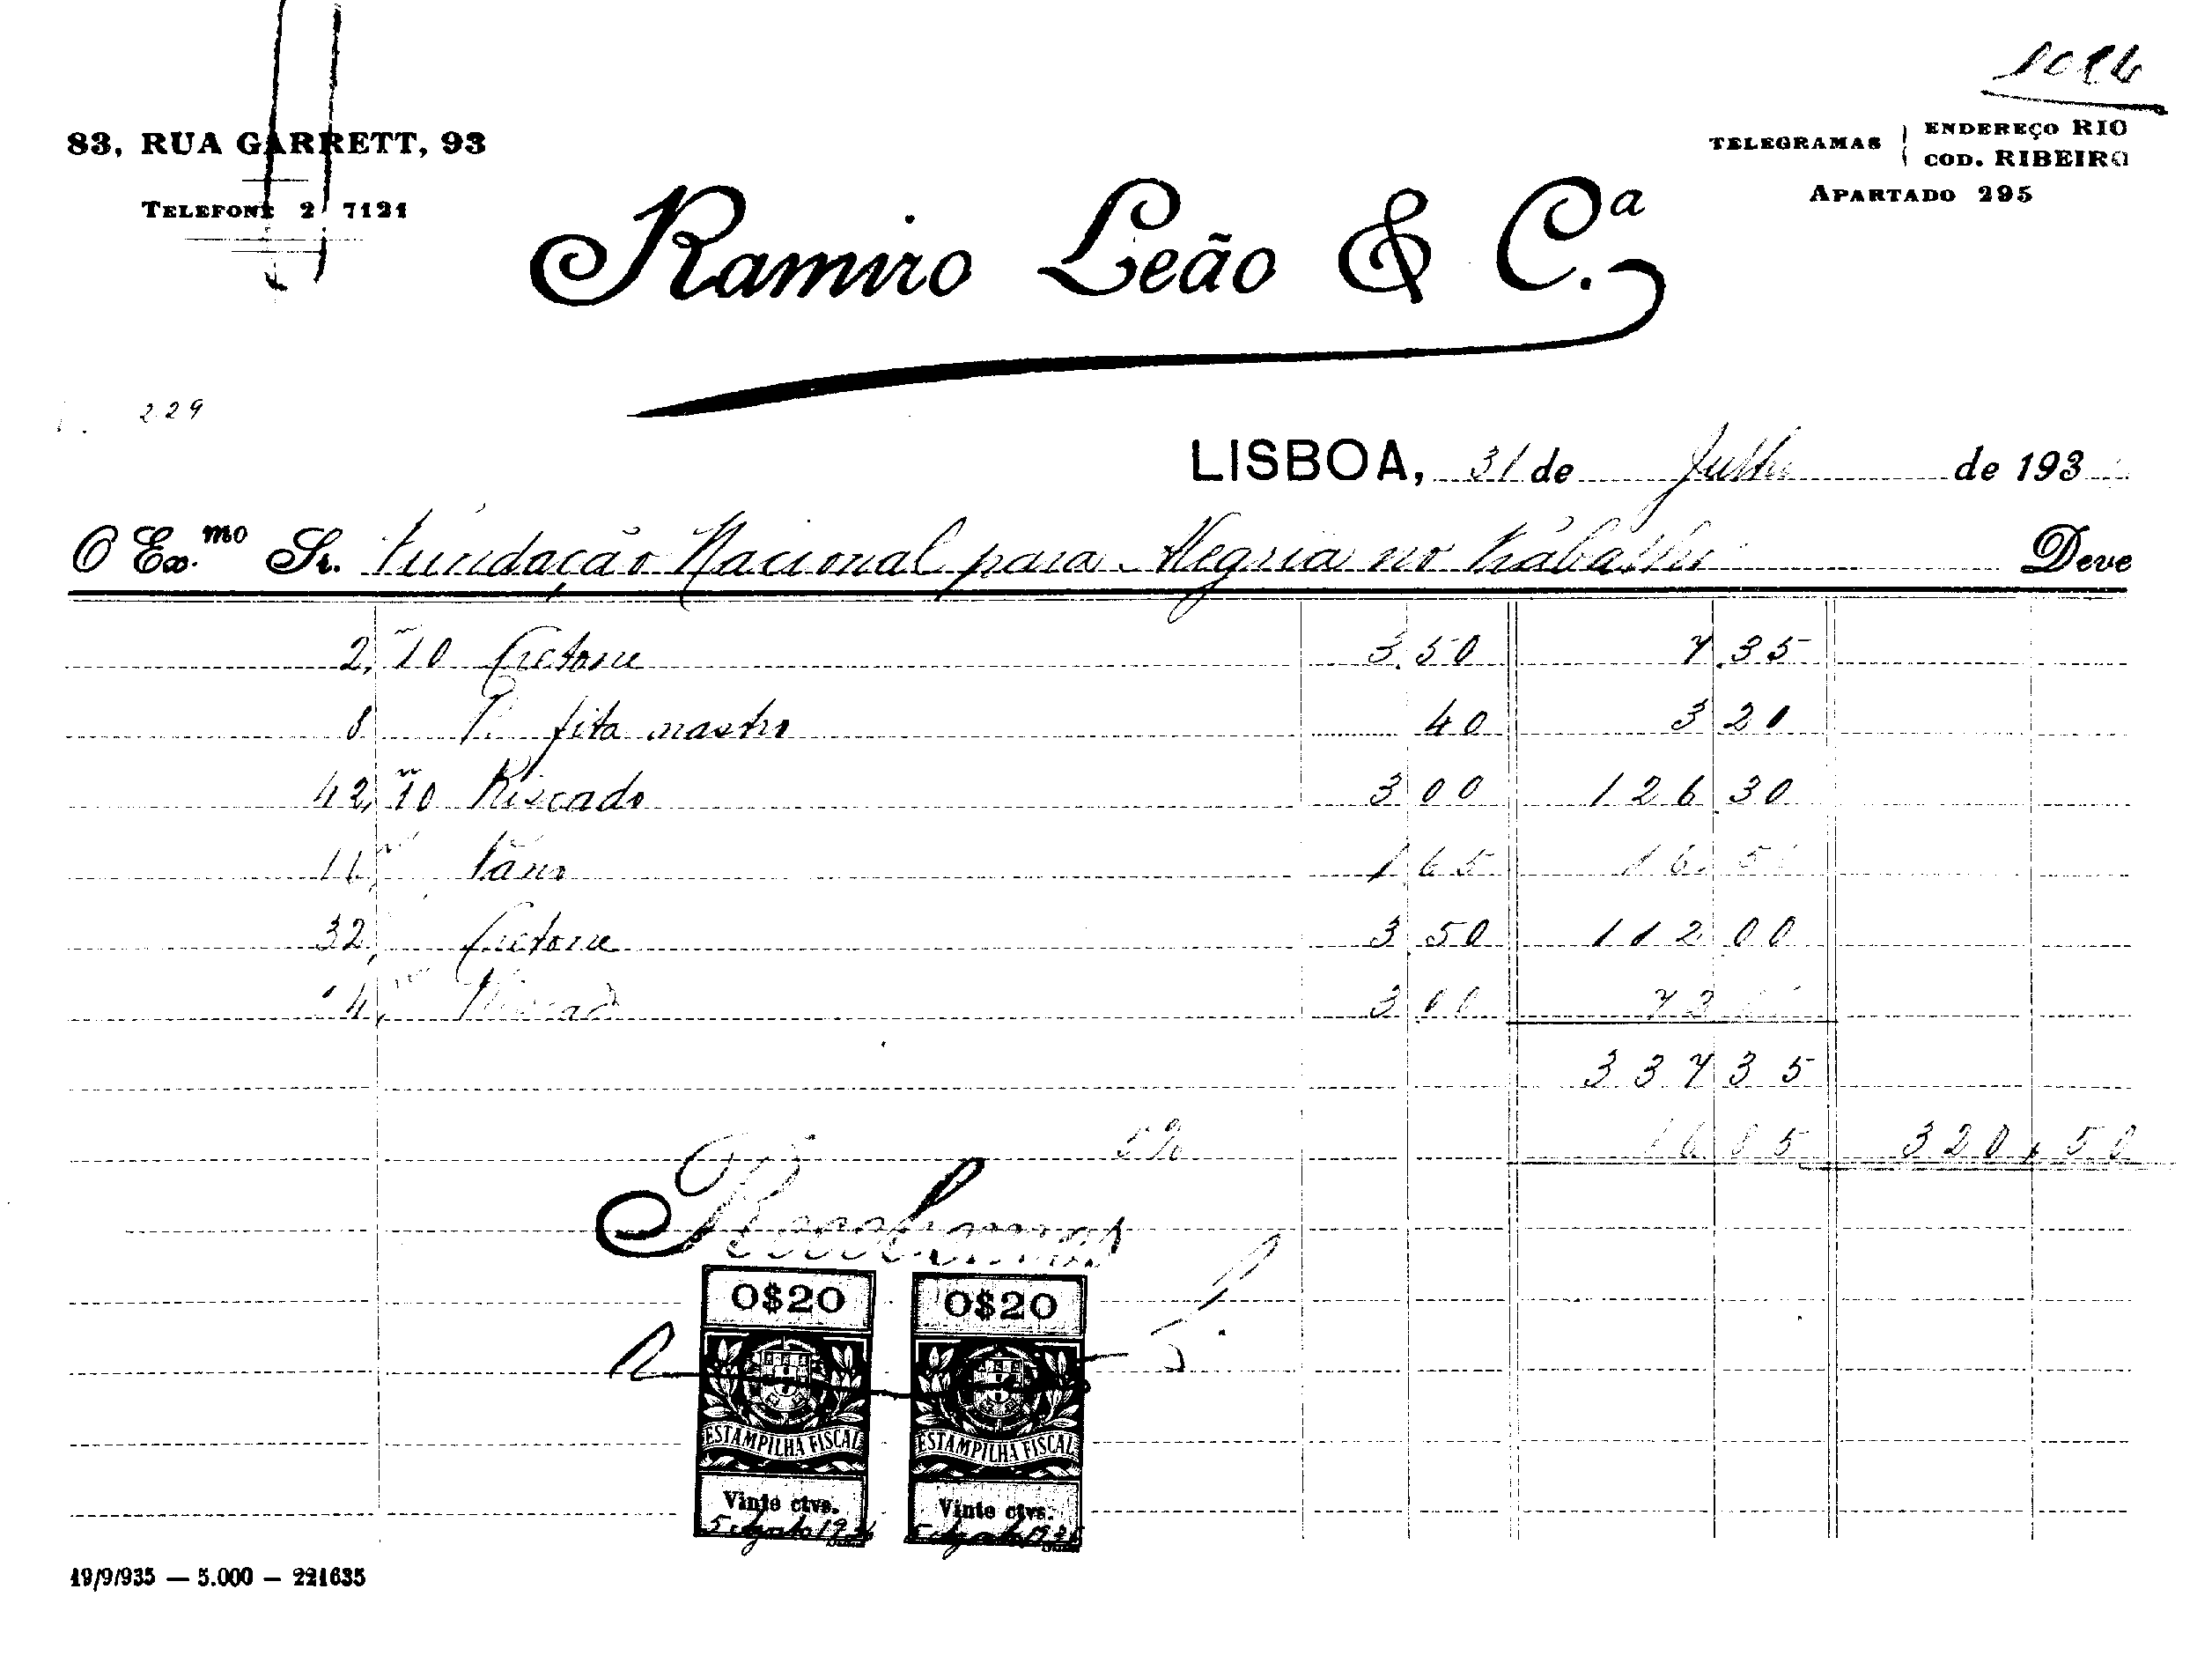 83, RUA GARRETT, 93
TELEFONE 2 7121
TELEGRAMAS
ENDEREÇO RIO
COD. RIBEIRO
APARTADO 295
Ramiro Leão & C.ª
229
LISBOA, 31 de Julho de 193
O Ex.mo Sr. Fundação Nacional para Alegria no trabalho Deve
2,m10 Cretone 3.50 7.35
8 P. fita nastro 40 3 20
42,m10 Riscado 3 00 126 30
Pano 1 65 16. 5
32, Cretone 3 50 112 00
4,m Riscad 3 00 72
337 35
5% 16 85 320,50
Recebemos
O$20 O$20
ESTAMPILHA FISCAL ESTAMPILHA FISCAL
Vinte ctvs. Vinte ctvs.
5 Agosto 1936 5 Agosto 1936
19/9/935 — 5.000 — 221635